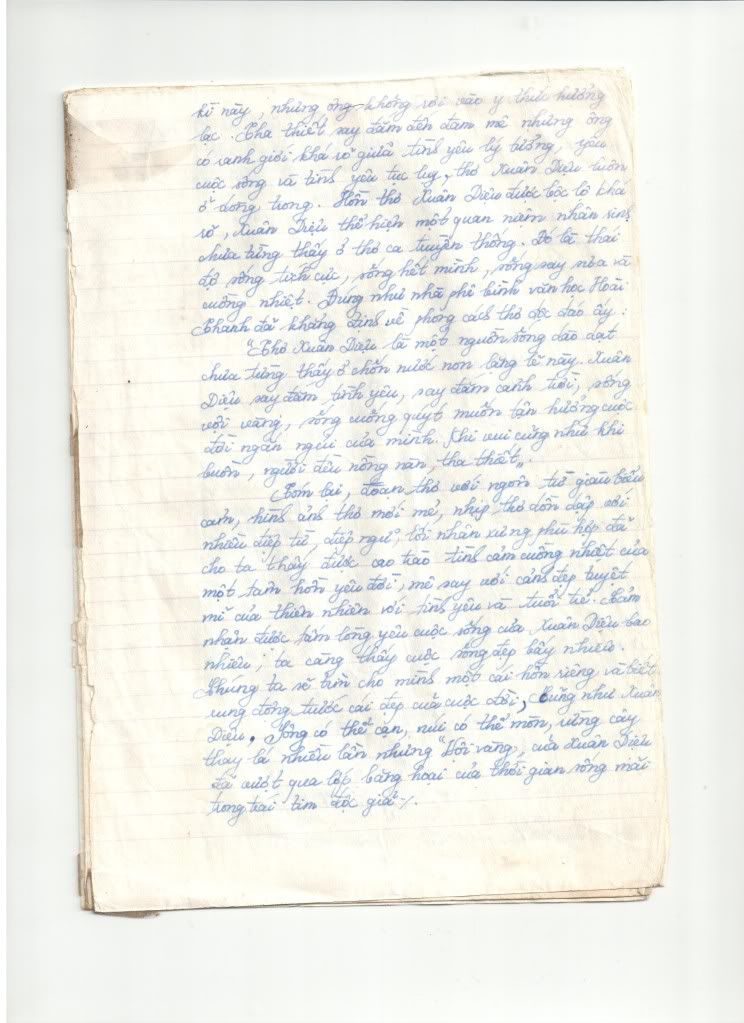 kĩ này, nhưng ông không rơi vào ý thức hưởng
lạc. Tha thiết say đắm đến đam mê nhưng ông
có ranh giới khá rõ giữa tình yêu lý tưởng, yêu
cuộc sống và tình yêu tục lụy. thơ Xuân Diệu luôn
ở dòng trong. Hồn thơ Xuân Diệu được bộc lộ khá
rõ, Xuân Diệu thể hiện một quan niệm nhân sinh
chưa từng thấy ở thơ ca truyền thống. Đó là thái
độ sống tích cực, sống hết mình, sống say sưa và
cuồng nhiệt. Đúng như nhà phê bình văn học Hoài
Thanh đã khẳng định về phong cách thơ độc đáo ấy:
"Thơ Xuân Diệu là một nguồn sống dào dạt
chưa từng thấy ở chốn nước non lặng lẽ này. Xuân
Diệu say đắm tình yêu, say đắm cảnh trời, sống
vội vàng, sống cuống quýt muốn tận hưởng cuộc
đời ngắn ngủi của mình. Khi vui cũng như khi
buồn, người đều nồng nàn, tha thiết".
Tóm lại, đoạn thơ với ngôn từ giàu biểu
cảm, hình ảnh thơ mới mẻ, nhịp thơ dồn dập với
nhiều điệp từ, điệp ngữ, lối nhân xưng phù hợp đã
cho ta thấy được cao trào tình cảm cuồng nhiệt của
một tâm hồn yêu đời, mê say với cảnh đẹp tuyệt
mĩ của thiên nhiên với tình yêu và tuổi trẻ. Cảm
nhận được tấm lòng yêu cuộc sống của Xuân Diệu bao
nhiêu, ta càng thấy cuộc sống đẹp bấy nhiêu.
Chúng ta sẽ tìm cho mình một cái hồn riêng và biết
rung động trước cái đẹp của cuộc đời, Cũng như Xuân
Diệu. Sông có thể cạn, núi có thể mòn, rừng cây
thay lá nhiều lần nhưng "Vội vàng" của Xuân Diệu
đã vượt qua lớp băng hoại của thời gian sống mãi
trong trái tim độc giả./.